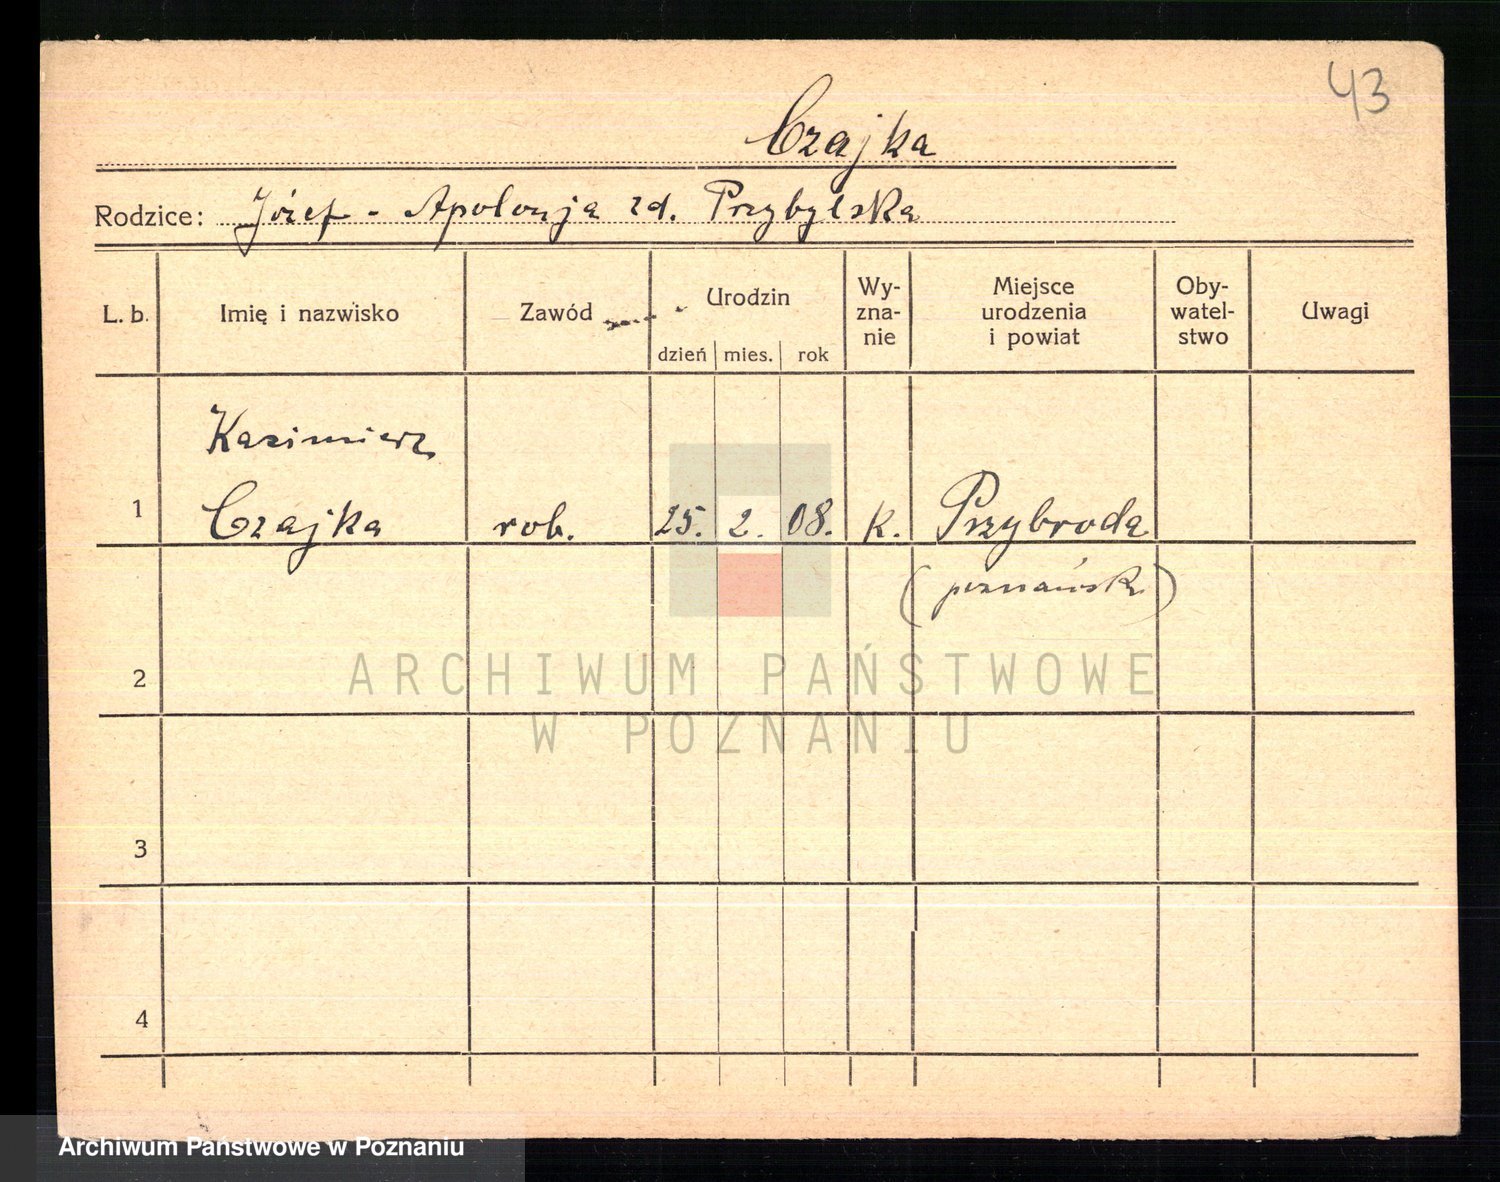 43
Czajka
Rodzice: Józef - Apolonja zd. Przybylska
L. b. Imię i nazwisko Zawód Urodzin dzień mies. rok Wy- zna- nie Miejsce urodzenia i powiat Oby- watel- stwo Uwagi
Kazimierz
1 Czajka rob. 25. 2. 08. k. Przybroda
(poznańsk)
2
ARCHIWUM PAŃSTWOWE
W POZNANIU
3
4
Archiwum Państwowe w Poznaniu